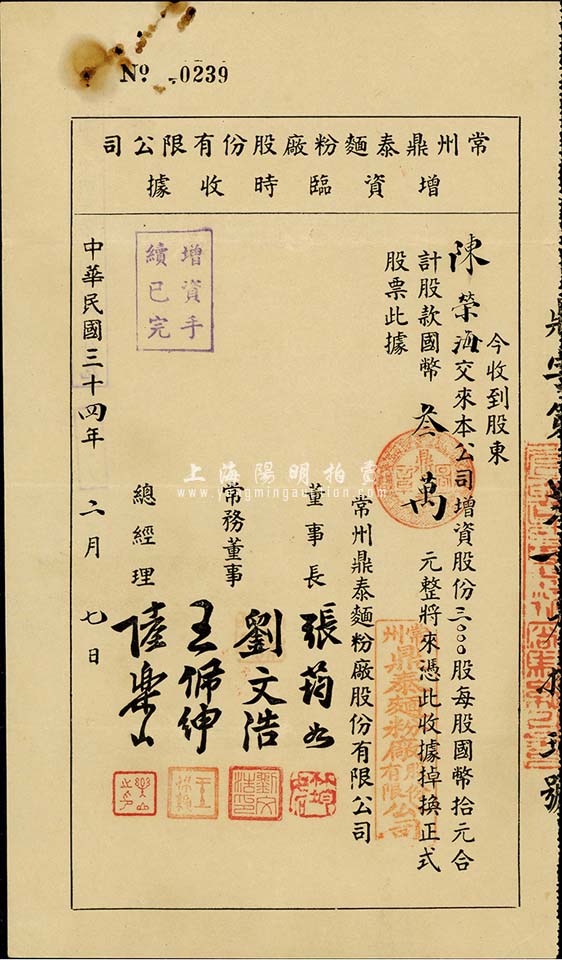 No 0239
常州鼎泰麵粉廠股份有限公司
增資臨時收據
今收到股東
陳榮海交來本公司增資股份三〇〇〇股每股國幣拾元合
計股款國幣叁萬元整將來憑此收據掉換正式
股票此據
常州鼎泰麵粉廠股份有限公司
董事長 張
常務董事 劉文浩
王佩紳
總經理 陸樂山
中華民國三十四年二月七日
增資手
續已完
常州鼎泰麵粉廠股份有限公司
上海陽明拍賣
www.yangmingauction.com
號